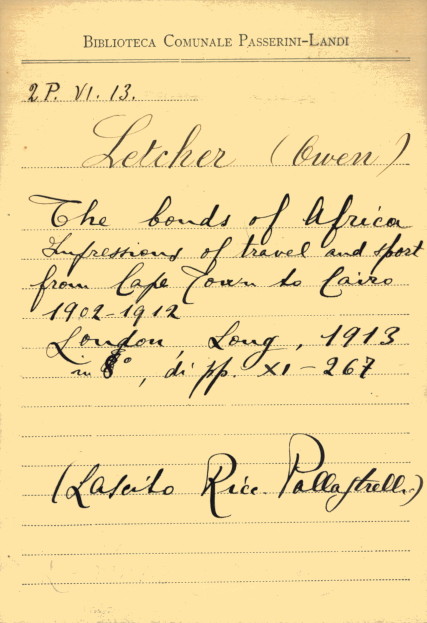 BIBLIOTECA COMUNALE PASSERINI-LANDI
2 P. VI. 13.
Letcher (Owen)
The bonds of Africa
Impressions of travel and sport
from Cape Town to Cairo
1902-1912
London, Long, 1913
in 8°, di pp. XI-267
(Lascito Ricc. Pallastrelli)